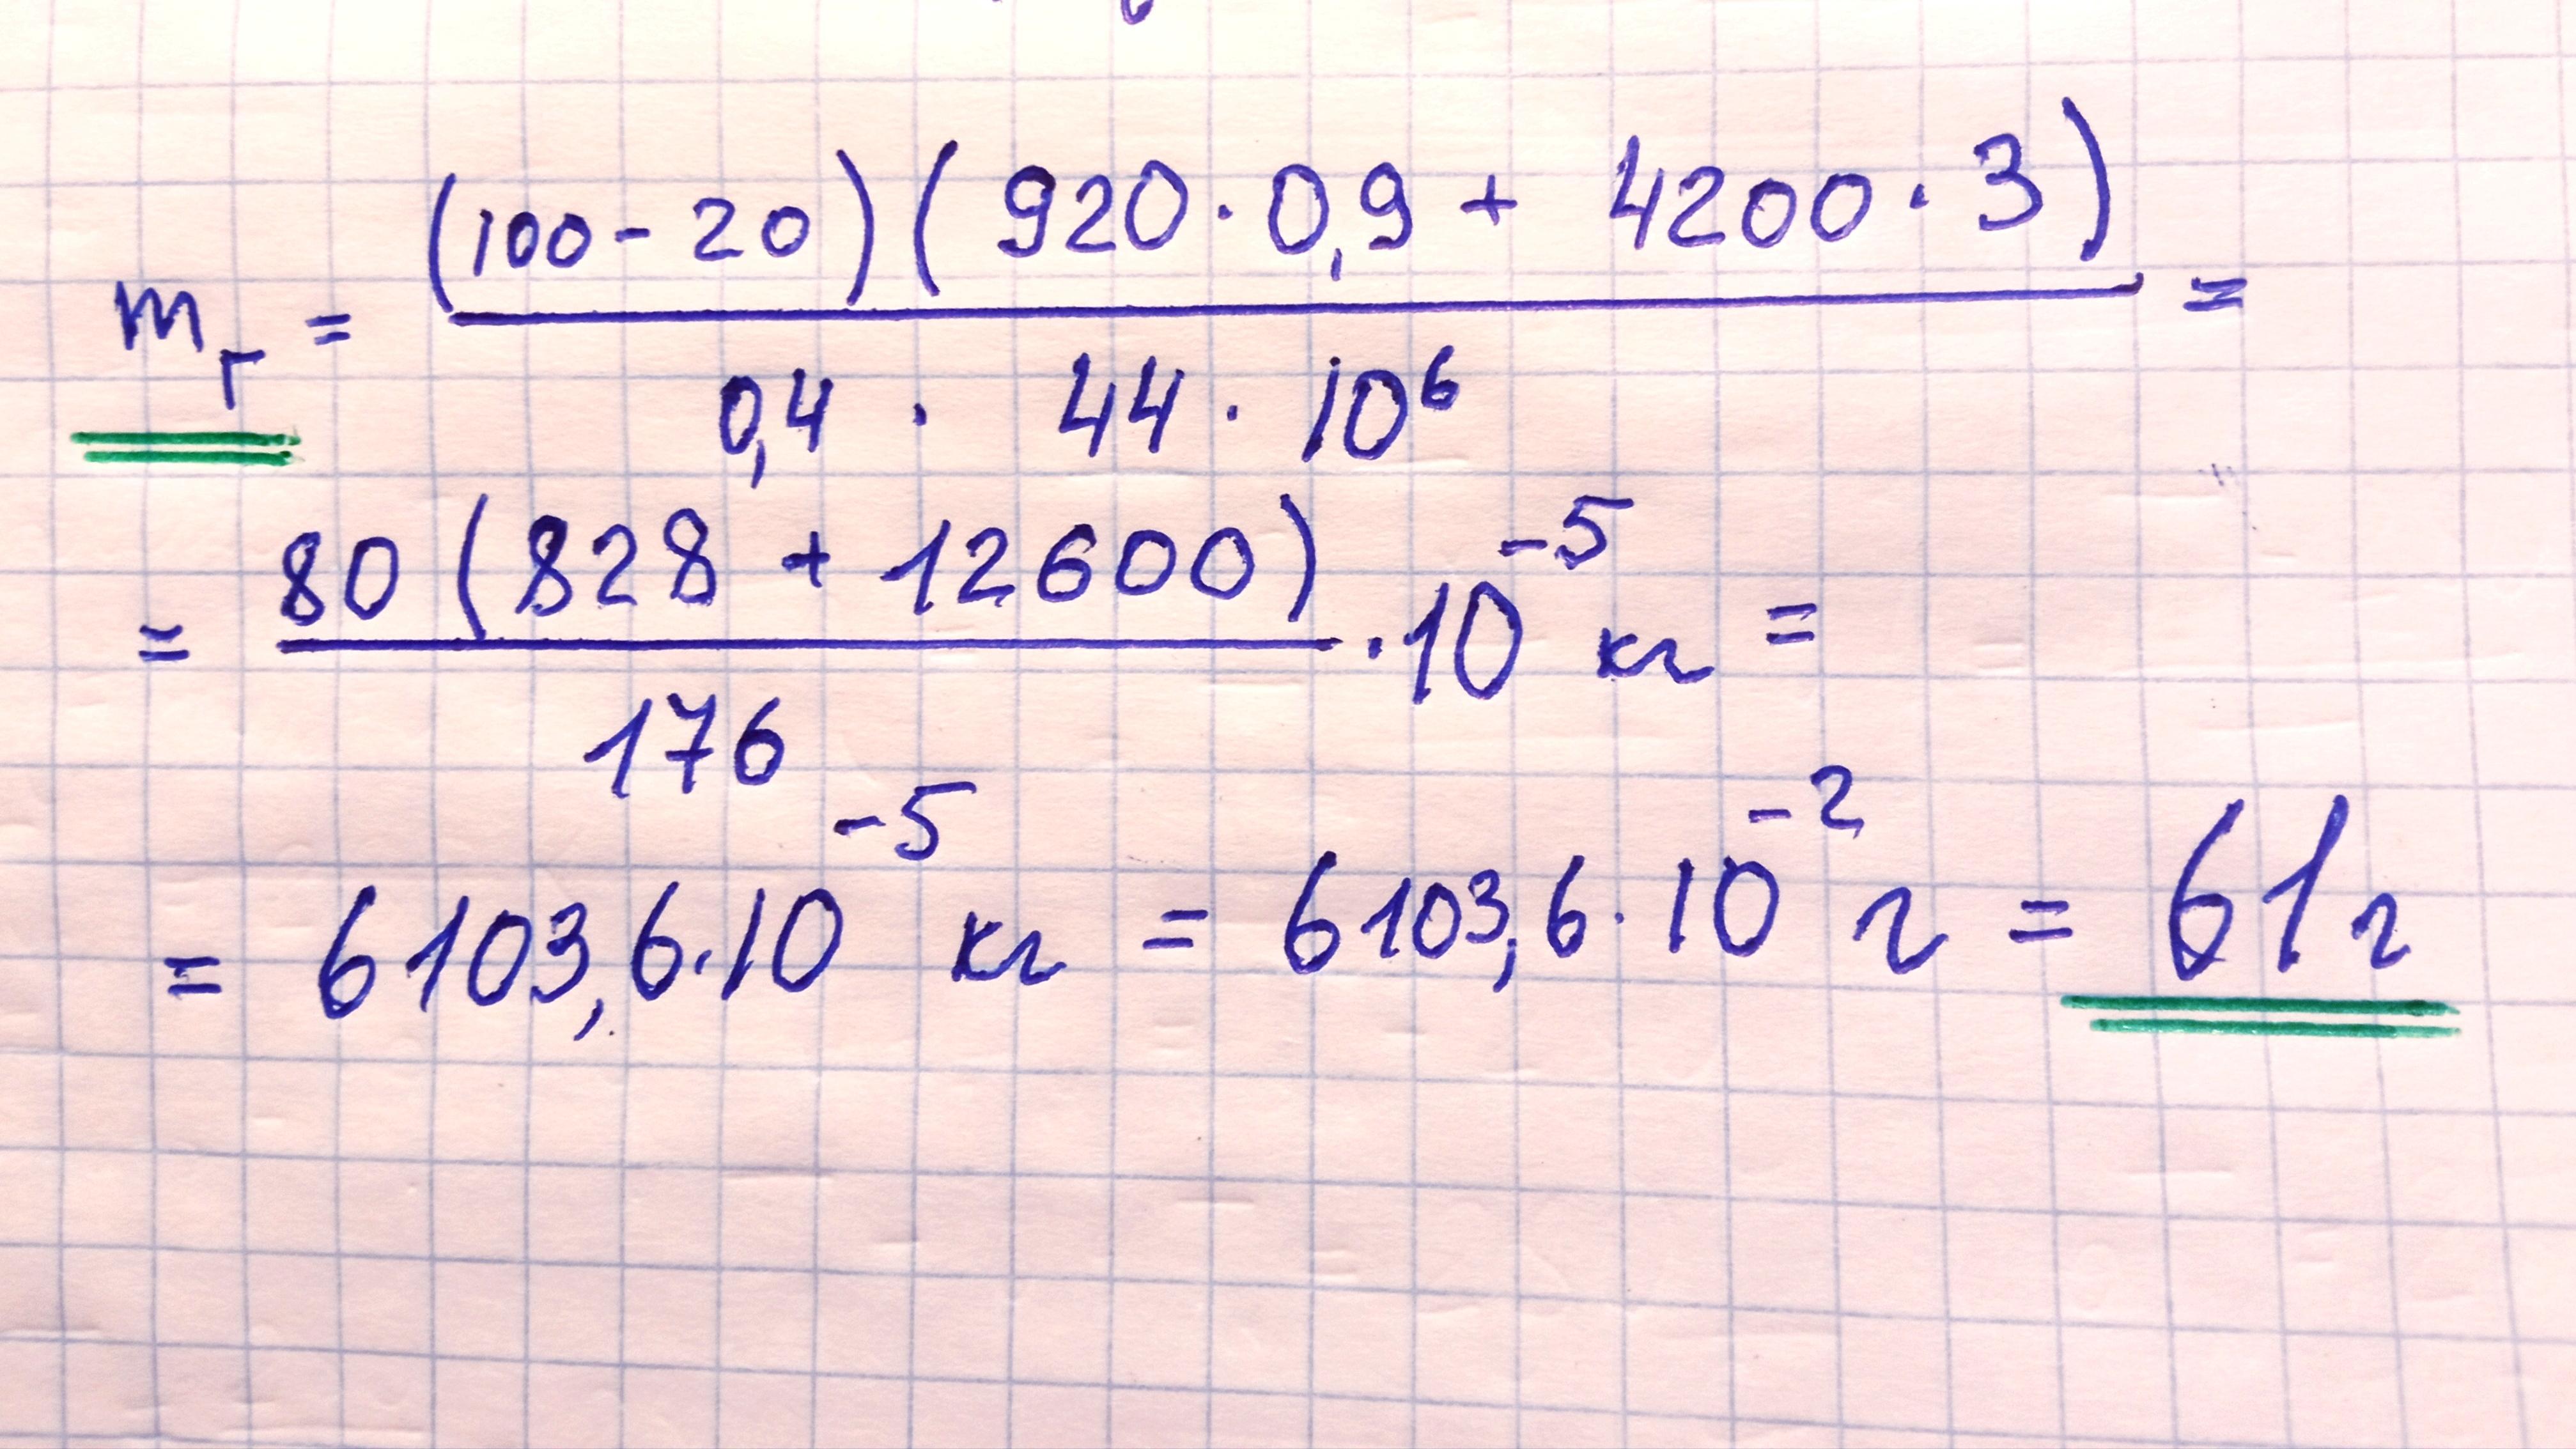 m_г = (100 - 20)(920 · 0,9 + 4200 · 3) / 0,4 · 44 · 10^6 =
= 80 (828 + 12600) / 176 · 10^-5 кг =
= 6103,6 · 10^-5 кг = 6103,6 · 10^-2 г = 61 г